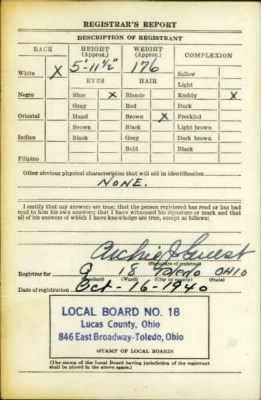 REGISTRAR'S REPORT
DESCRIPTION OF REGISTRANT
RACE HEIGHT (Approx.) WEIGHT (Approx.) COMPLEXION
5'-11½" 176
White X Sallow
EYES HAIR Light
Negro Blue X Blonde Ruddy X
Gray Red Dark
Oriental Hazel Brown X Freckled
Brown Black Light brown
Indian Black Gray Dark brown
Bald Black
Filipino
Other obvious physical characteristics that will aid in identification
NONE.
I certify that my answers are true; that the person registered has read or has had
read to him his own answers; that I have witnessed his signature or mark and that
all of his answers of which I have knowledge are true, except as follows:
Archie J Guest
(Signature of registrar)
Registrar for 9 18 TOLEDO OHIO
(Ward) (City or county) (State)
Date of registration Oct-16-1940
LOCAL BOARD NO. 18
Lucas County, Ohio
846 East Broadway-Toledo, Ohio
(STAMP OF LOCAL BOARD)
(The stamp of the Local Board having jurisdiction of the registrant
shall be placed in the above space.)